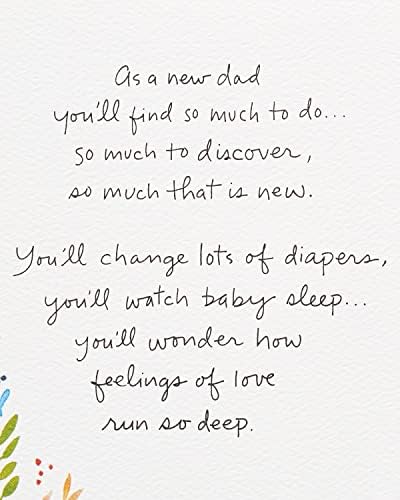 As a new dad
you'll find so much to do...
so much to discover,
so much that is new.
You'll change lots of diapers,
you'll watch baby sleep...
you'll wonder how
feelings of love
run so deep.